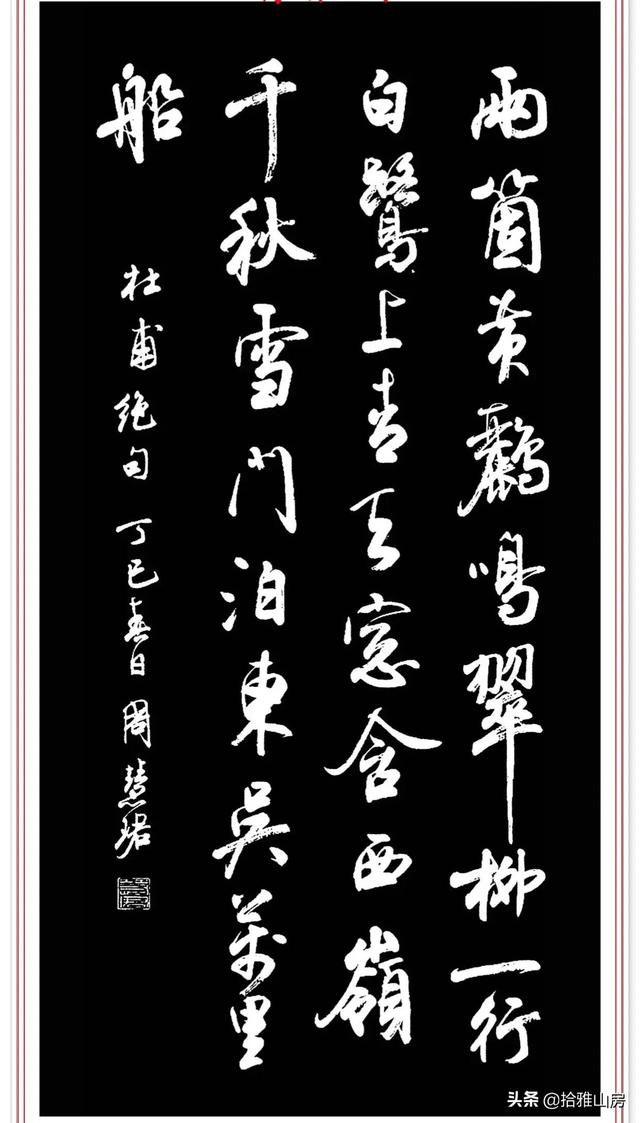 兩箇黄鸝鳴翠柳一行
白鷺上青天窓含西嶺
千秋雪門泊東吳萬里
船
杜甫绝句 丁巳春日 周慧珺
头条 @拾雅山房